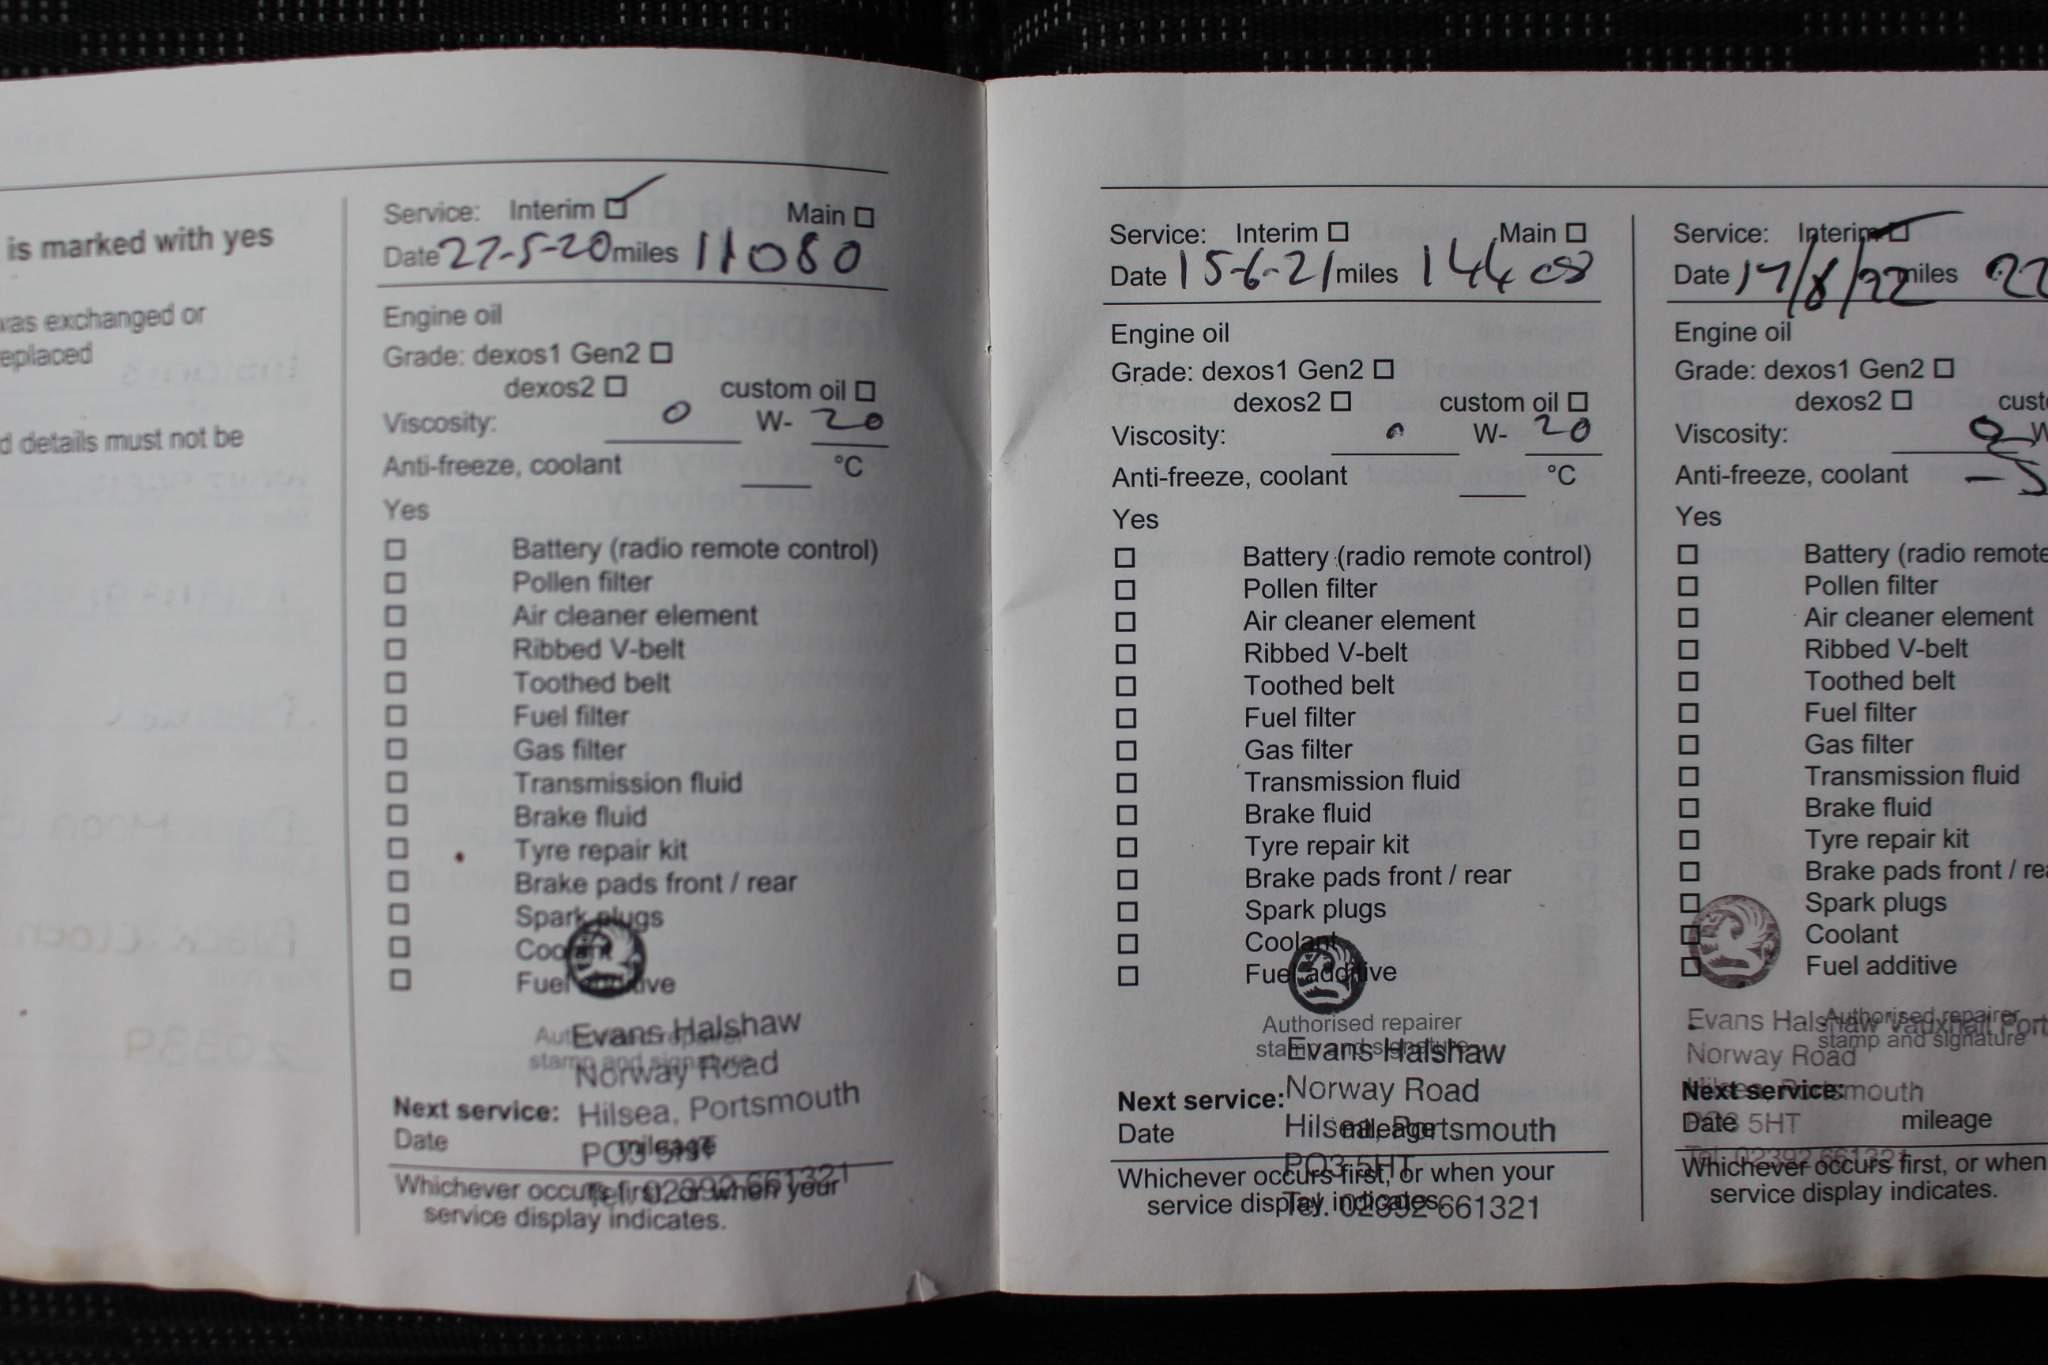 is marked with yes
was exchanged or
replaced
d details must not be
Service: Interim Main
Date 27-5-20 miles 11080
Engine oil
Grade: dexos1 Gen2
dexos2 custom oil
Viscosity: 0 W- 20
Anti-freeze, coolant °C
Yes
Battery (radio remote control)
Pollen filter
Air cleaner element
Ribbed V-belt
Toothed belt
Fuel filter
Gas filter
Transmission fluid
Brake fluid
Tyre repair kit
Brake pads front / rear
Spark plugs
Coolant
Fuel additive
Authorised repairer
stamp and signature
Evans Halshaw
Norway Road
Hilsea, Portsmouth
PO3 5HT
Tel. 02392 661321
Next service:
Date mileage
Whichever occurs first, or when your
service display indicates.
Service: Interim Main
Date 15-6-21 miles 14408
Engine oil
Grade: dexos1 Gen2
dexos2 custom oil
Viscosity: 0 W- 20
Anti-freeze, coolant °C
Yes
Battery (radio remote control)
Pollen filter
Air cleaner element
Ribbed V-belt
Toothed belt
Fuel filter
Gas filter
Transmission fluid
Brake fluid
Tyre repair kit
Brake pads front / rear
Spark plugs
Coolant
Fuel additive
Authorised repairer
stamp and signature
Evans Halshaw
Norway Road
Hilsea, Portsmouth
PO3 5HT
Tel. 02392 661321
Next service:
Date mileage
Whichever occurs first, or when your
service display indicates.
Service: Interim
Date 17/8/22 miles 22
Engine oil
Grade: dexos1 Gen2
dexos2 cust
Viscosity: 0 W
Anti-freeze, coolant
Yes
Battery (radio remote
Pollen filter
Air cleaner element
Ribbed V-belt
Toothed belt
Fuel filter
Gas filter
Transmission fluid
Brake fluid
Tyre repair kit
Brake pads front / rea
Spark plugs
Coolant
Fuel additive
Authorised repairer
stamp and signature
Evans Halshaw Vauxhall Port
Norway Road
Hilsea, Portsmouth
PO3 5HT
Tel: 02392 661321
Next service:
Date mileage
Whichever occurs first, or when
service display indicates.